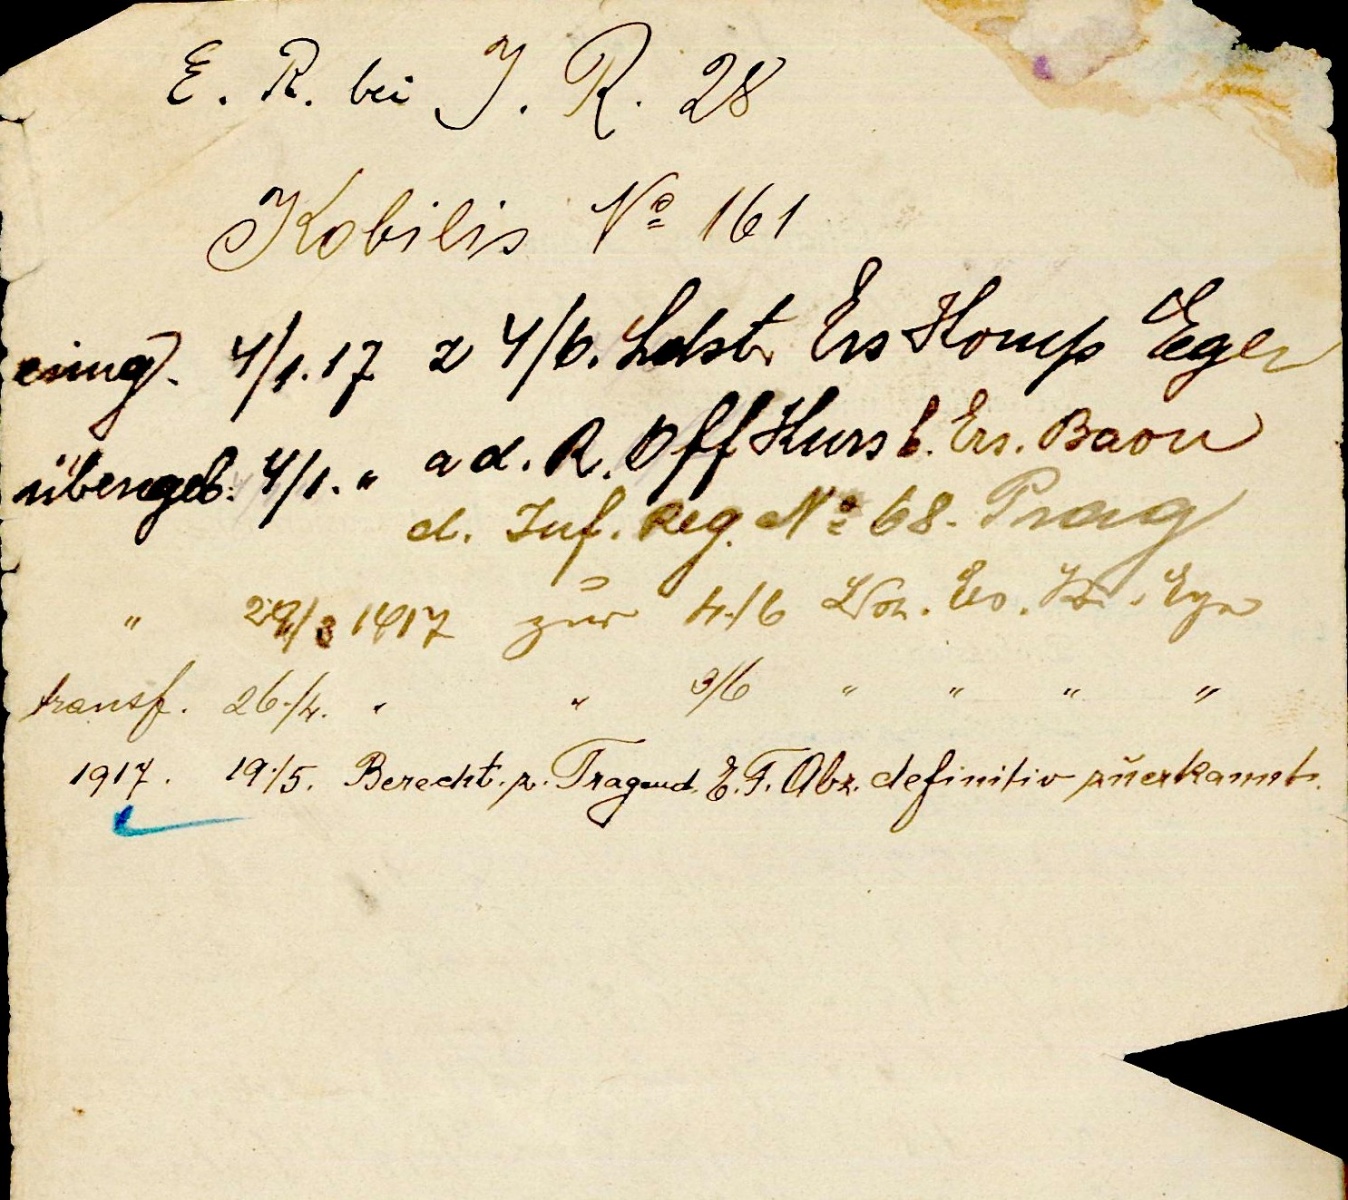 E. R. bei J. R. 28
Kobilis Nº 161
eing. 4/1.17 z 4/6. Ldst. Ers Komp Eger
übergeb. 4/1. " a d. R. Off Kurs b. Ers. Baon
d. Inf. Reg. Nº 68. Prag
" 29/3 1917 zur 4./6 Ers. K. Eger
transf. 26./4. " " 3/6 " " " "
1917. 19./5. Berecht. z. Tragend. E. F. Abz. definitiv zuerkannt.